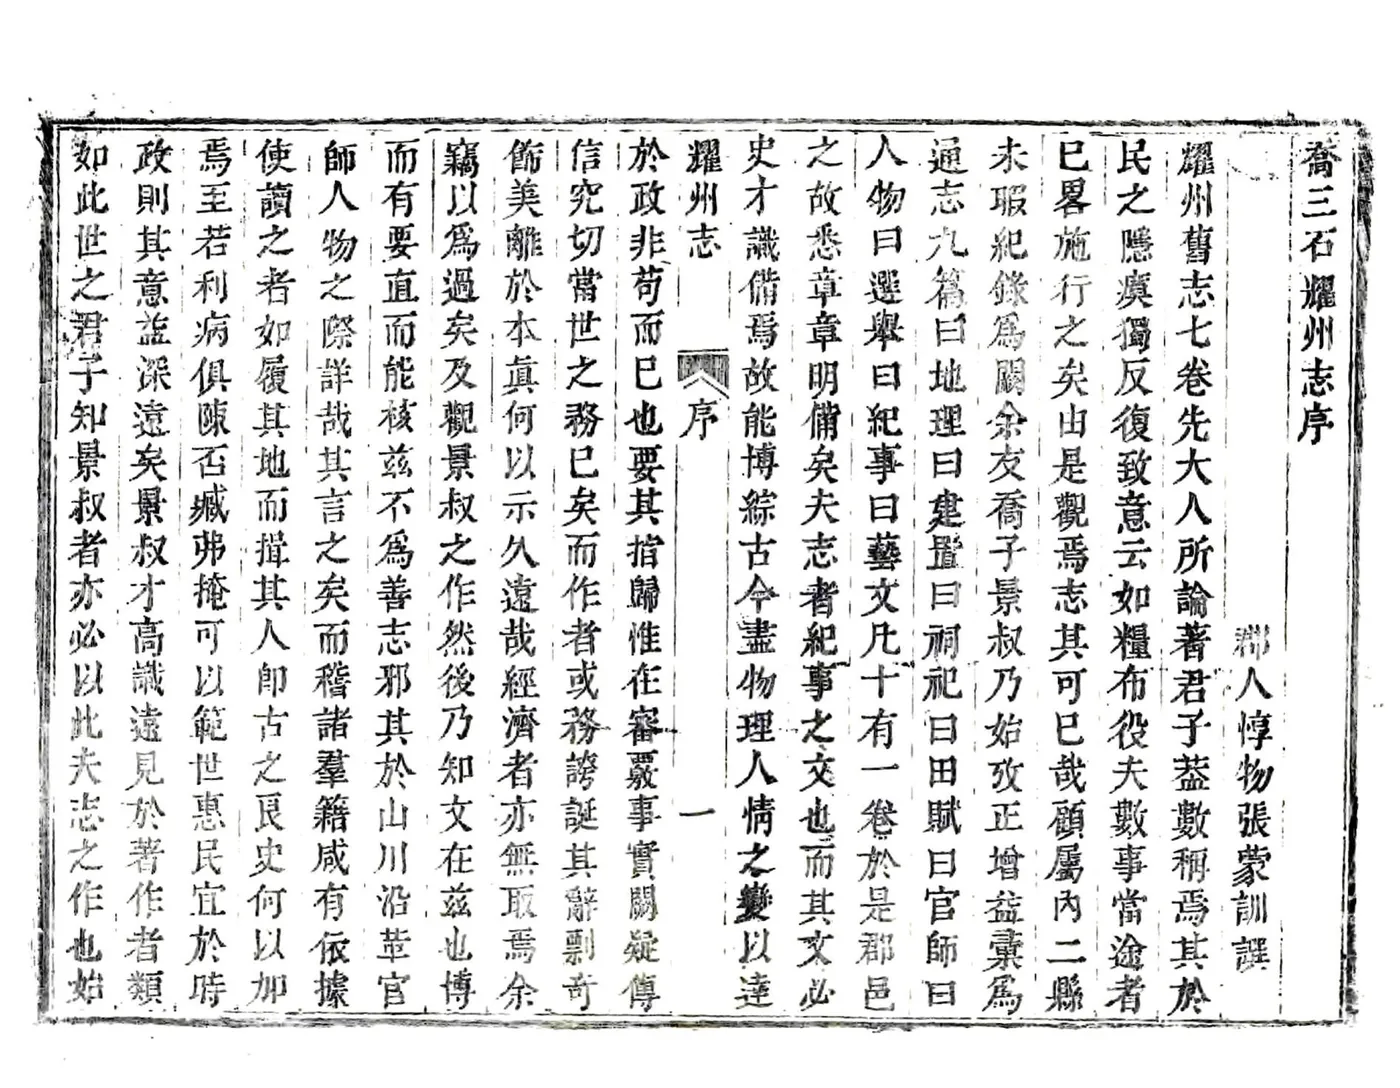 喬三石耀州志序
郡人惇物張蒙訓譔
耀州舊志七卷先大人所論著君子葢數稱焉其於
民之隱瘼獨反復致意云如糧布役夫數事當途者
已畧施行之矣由是觀焉志其可已哉顧屬內二縣
未暇紀錄爲闕余友喬子景叔乃始攷正增益彙爲
通志九篇曰地理曰建置曰祠祀曰田賦曰官師曰
人物曰選舉曰紀事曰藝文凡十有一卷於是郡邑
之故悉章章明備矣夫志者紀事之文也而其文必
史才識備焉故能博綜古今盡物理人情之變以達
耀州志 序 一
於政非苟而已也要其指歸惟在審覈事實闕疑傳
信究切當世之務已矣而作者或務誇誕其辭剽奇
飾美離於本眞何以示久遠哉經濟者亦無取焉余
竊以爲過矣及觀景叔之作然後乃知文在茲也博
而有要直而能核茲不爲善志邪其於山川沿革官
師人物之際詳哉其言之矣而稽諸羣籍咸有依據
使讀之者如履其地而揖其人卽古之良史何以加
焉至若利病俱陳否臧弗掩可以範世惠民宜於時
政則其意益深遠矣景叔才高識遠見於著作者類
如此世之君子知景叔者亦必以此夫志之作也始